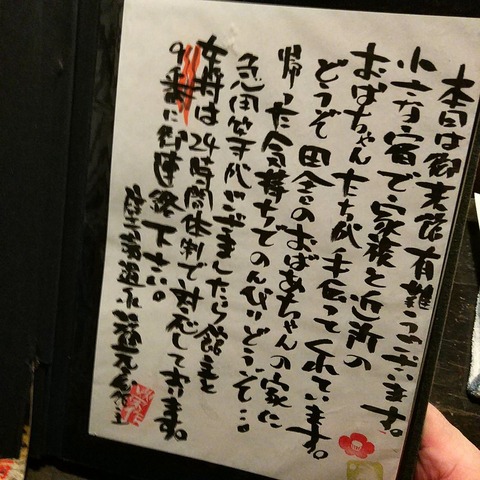 本日は御来館有難うございます。
小さな宿で家族と近所の
おばちゃんたちが手伝ってくれています。
どうぞ田舎のおばあちゃんの家に
帰った気持ちでのんびりどうぞ…。
急用等がございましたら館主と
女将は24時間体制で対応しております。
9番に御連絡下さい。